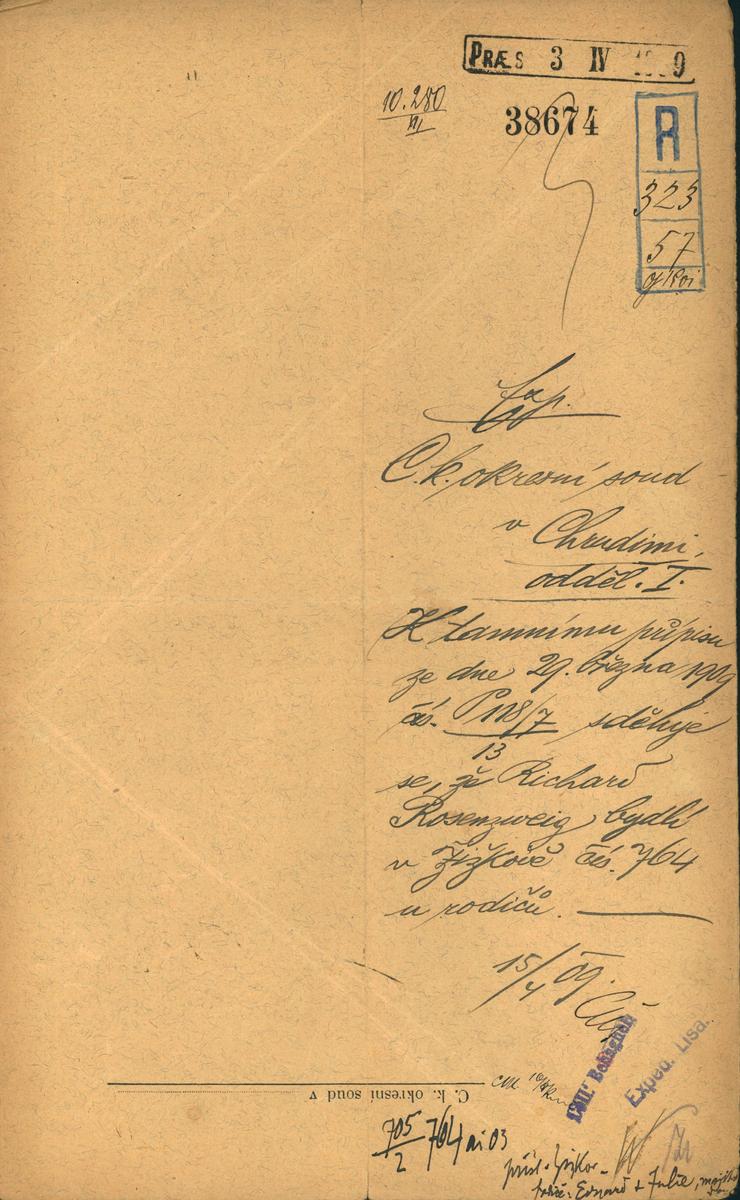 PRÆS 3 IV 9
10.280
VII
38674
R
323
57
Exp.
C. k. okresní soud
v Chrudimi,
odděl. I.
K tamnímu přípisu
ze dne 29. března 1909
čís. P 118/7 sděluje
13
se, že Richard
Rosenzweig bydlí
v Žižkově čís. 764
u rodičů.
15/4 09.
C. k. okresní soud v
Exped. Lisa.
705
2
764 ai 03
přísl. Žižkov
Eduard + Julie,